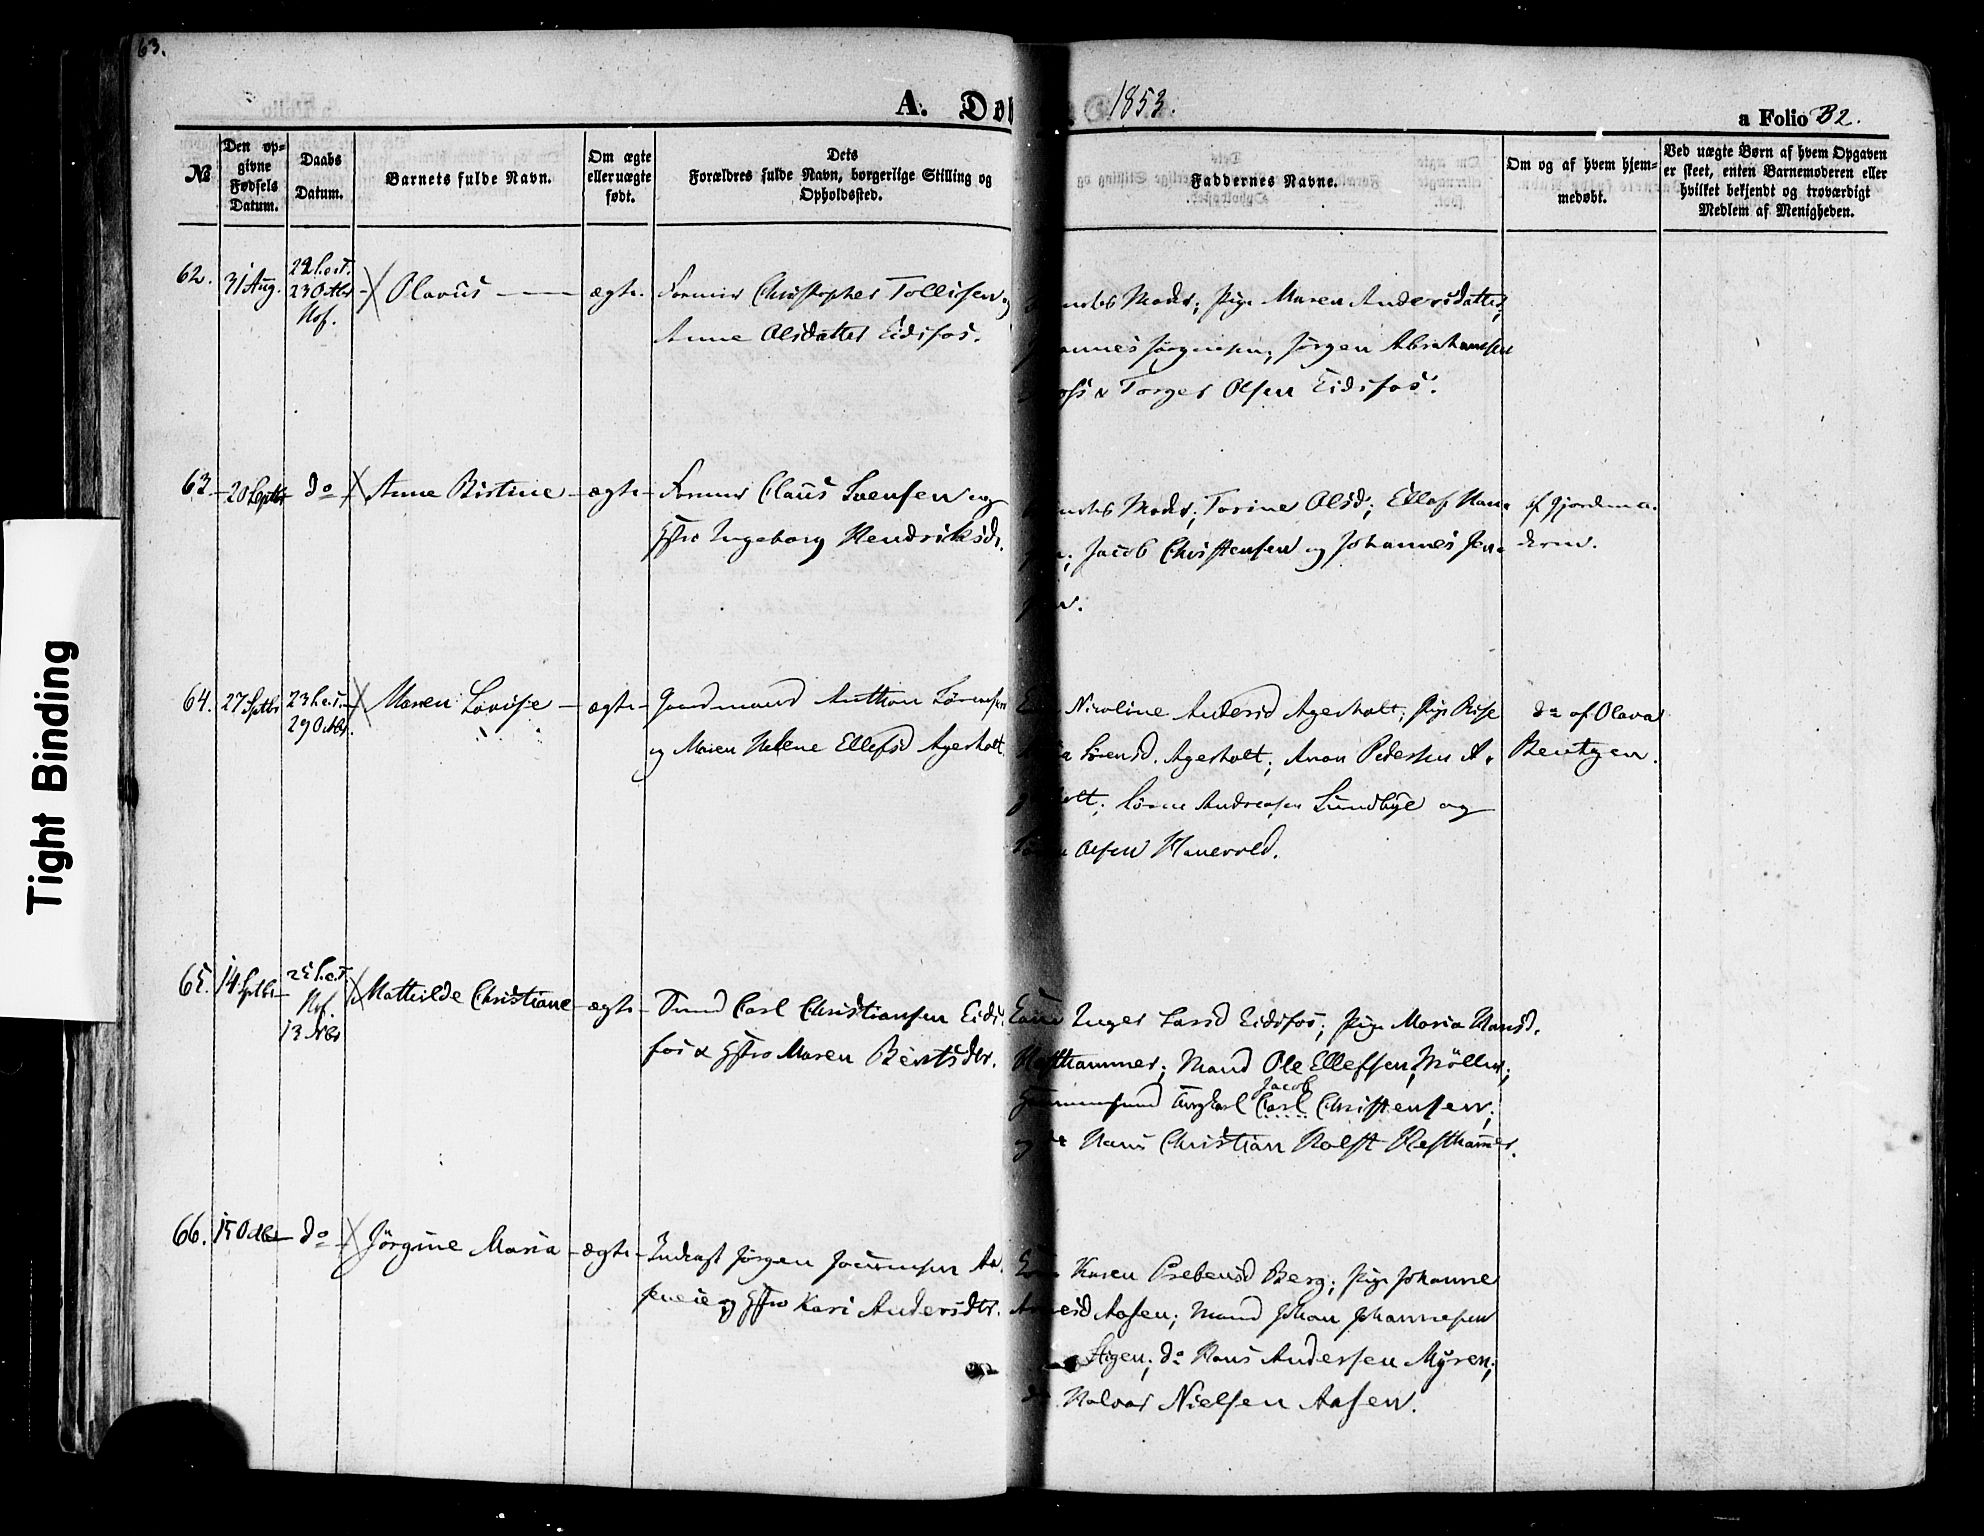 63.
A. Døb
1853.
a Folio 32.
№
Den op-
givne
Fødsels
Datum.
Daabs
Datum.
Barnets fulde Navn.
Om ægte
eller uægte
født.
Dets
Forældres fulde Navn, borgerlige Stilling og
Opholdssted.
Faddernes Navne.
Om og af hvem hjem-
medøbt.
Ved uægte Børn af hvem Opgaven
er skeet, enten Barnemoderen eller
hvilket bekjendt og troværdigt
Medlem af Menigheden.
62.
31 Aug.
23 Octbr
Hof.
Olavus
ægte
Former Christopher Tollefsen og
Anne Olsdatter Eidsfos.
Moder; Pige Maren Andersdatter;
Jørgensen; Jørgen Abrahamsen
Torger Olsen Eidsfos.
63.
20 Septbr
do
Anne Birtine
ægte
Former Claus Svensen og
Hstro Ingeborg Hendriksdr.
Moder; Torine Olsd; Ellef Han-
Jacob Christensen og Johannes Jen-
af Gjordemo-
deren.
64.
27 Septbr
29 Octbr.
Maren Lovise
ægte
Gaardmand Anthon Sørensen
og Maren Helene Ellefsd Agerholt
Nicoline Andersd Agerholt; Pige
Sørensd. Agerholt; Aron Pedersen A-
Andreasen Sundbye og
Olsen Hanevold.
do af Olava
Bentzen.
65.
14 Septbr
Hof.
13 Nbr
Mathilde Christiane
ægte
Smed Carl Christiansen Eids-
fos & Hstro Maren Berntsdtr.
Kone Inger Larsd Eidsfos; Pige Maria Hansd.
Hefthammer; Mand Ole Ellefsen Møller;
Jacob
Ungkarl Carl Christensen;
og do Hans Christian Rolfst Hefthammer.
66.
15 Octbr
do
Jørgine Maria
ægte
Inderst Jørgen Joensen Aa-
seneie og Hstro Kari Andersdtr.
Kone Karen Prebensd Berg; Pige Johanne
Aasen; Mand Johan Johannesen
Stigen; do Hans Andersen Myren;
do Halvor Nielsen Aasen.
Tight Binding